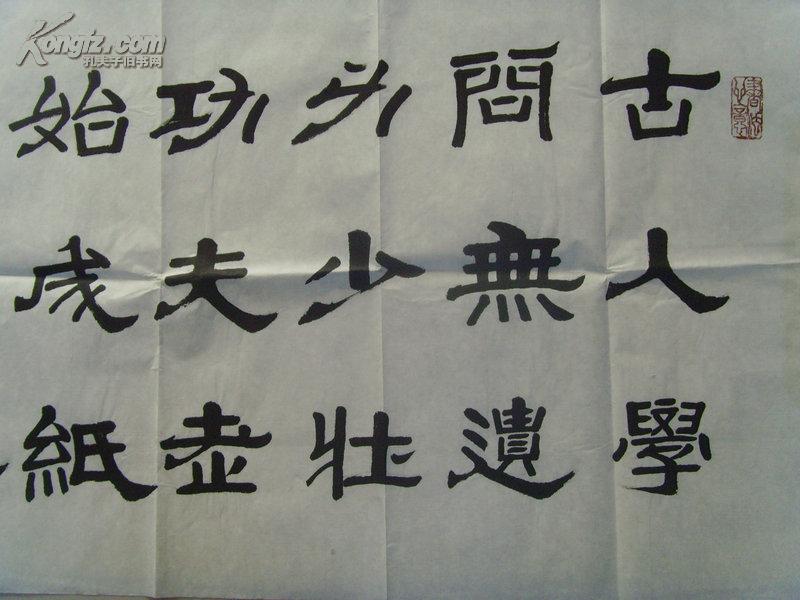 古人學
問無遺
力少壯
功夫老
始成紙
Kongfz.com
孔夫子旧书网